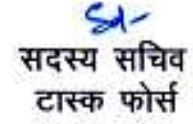 Sd/-
सदस्य सचिव
टास्क फोर्स